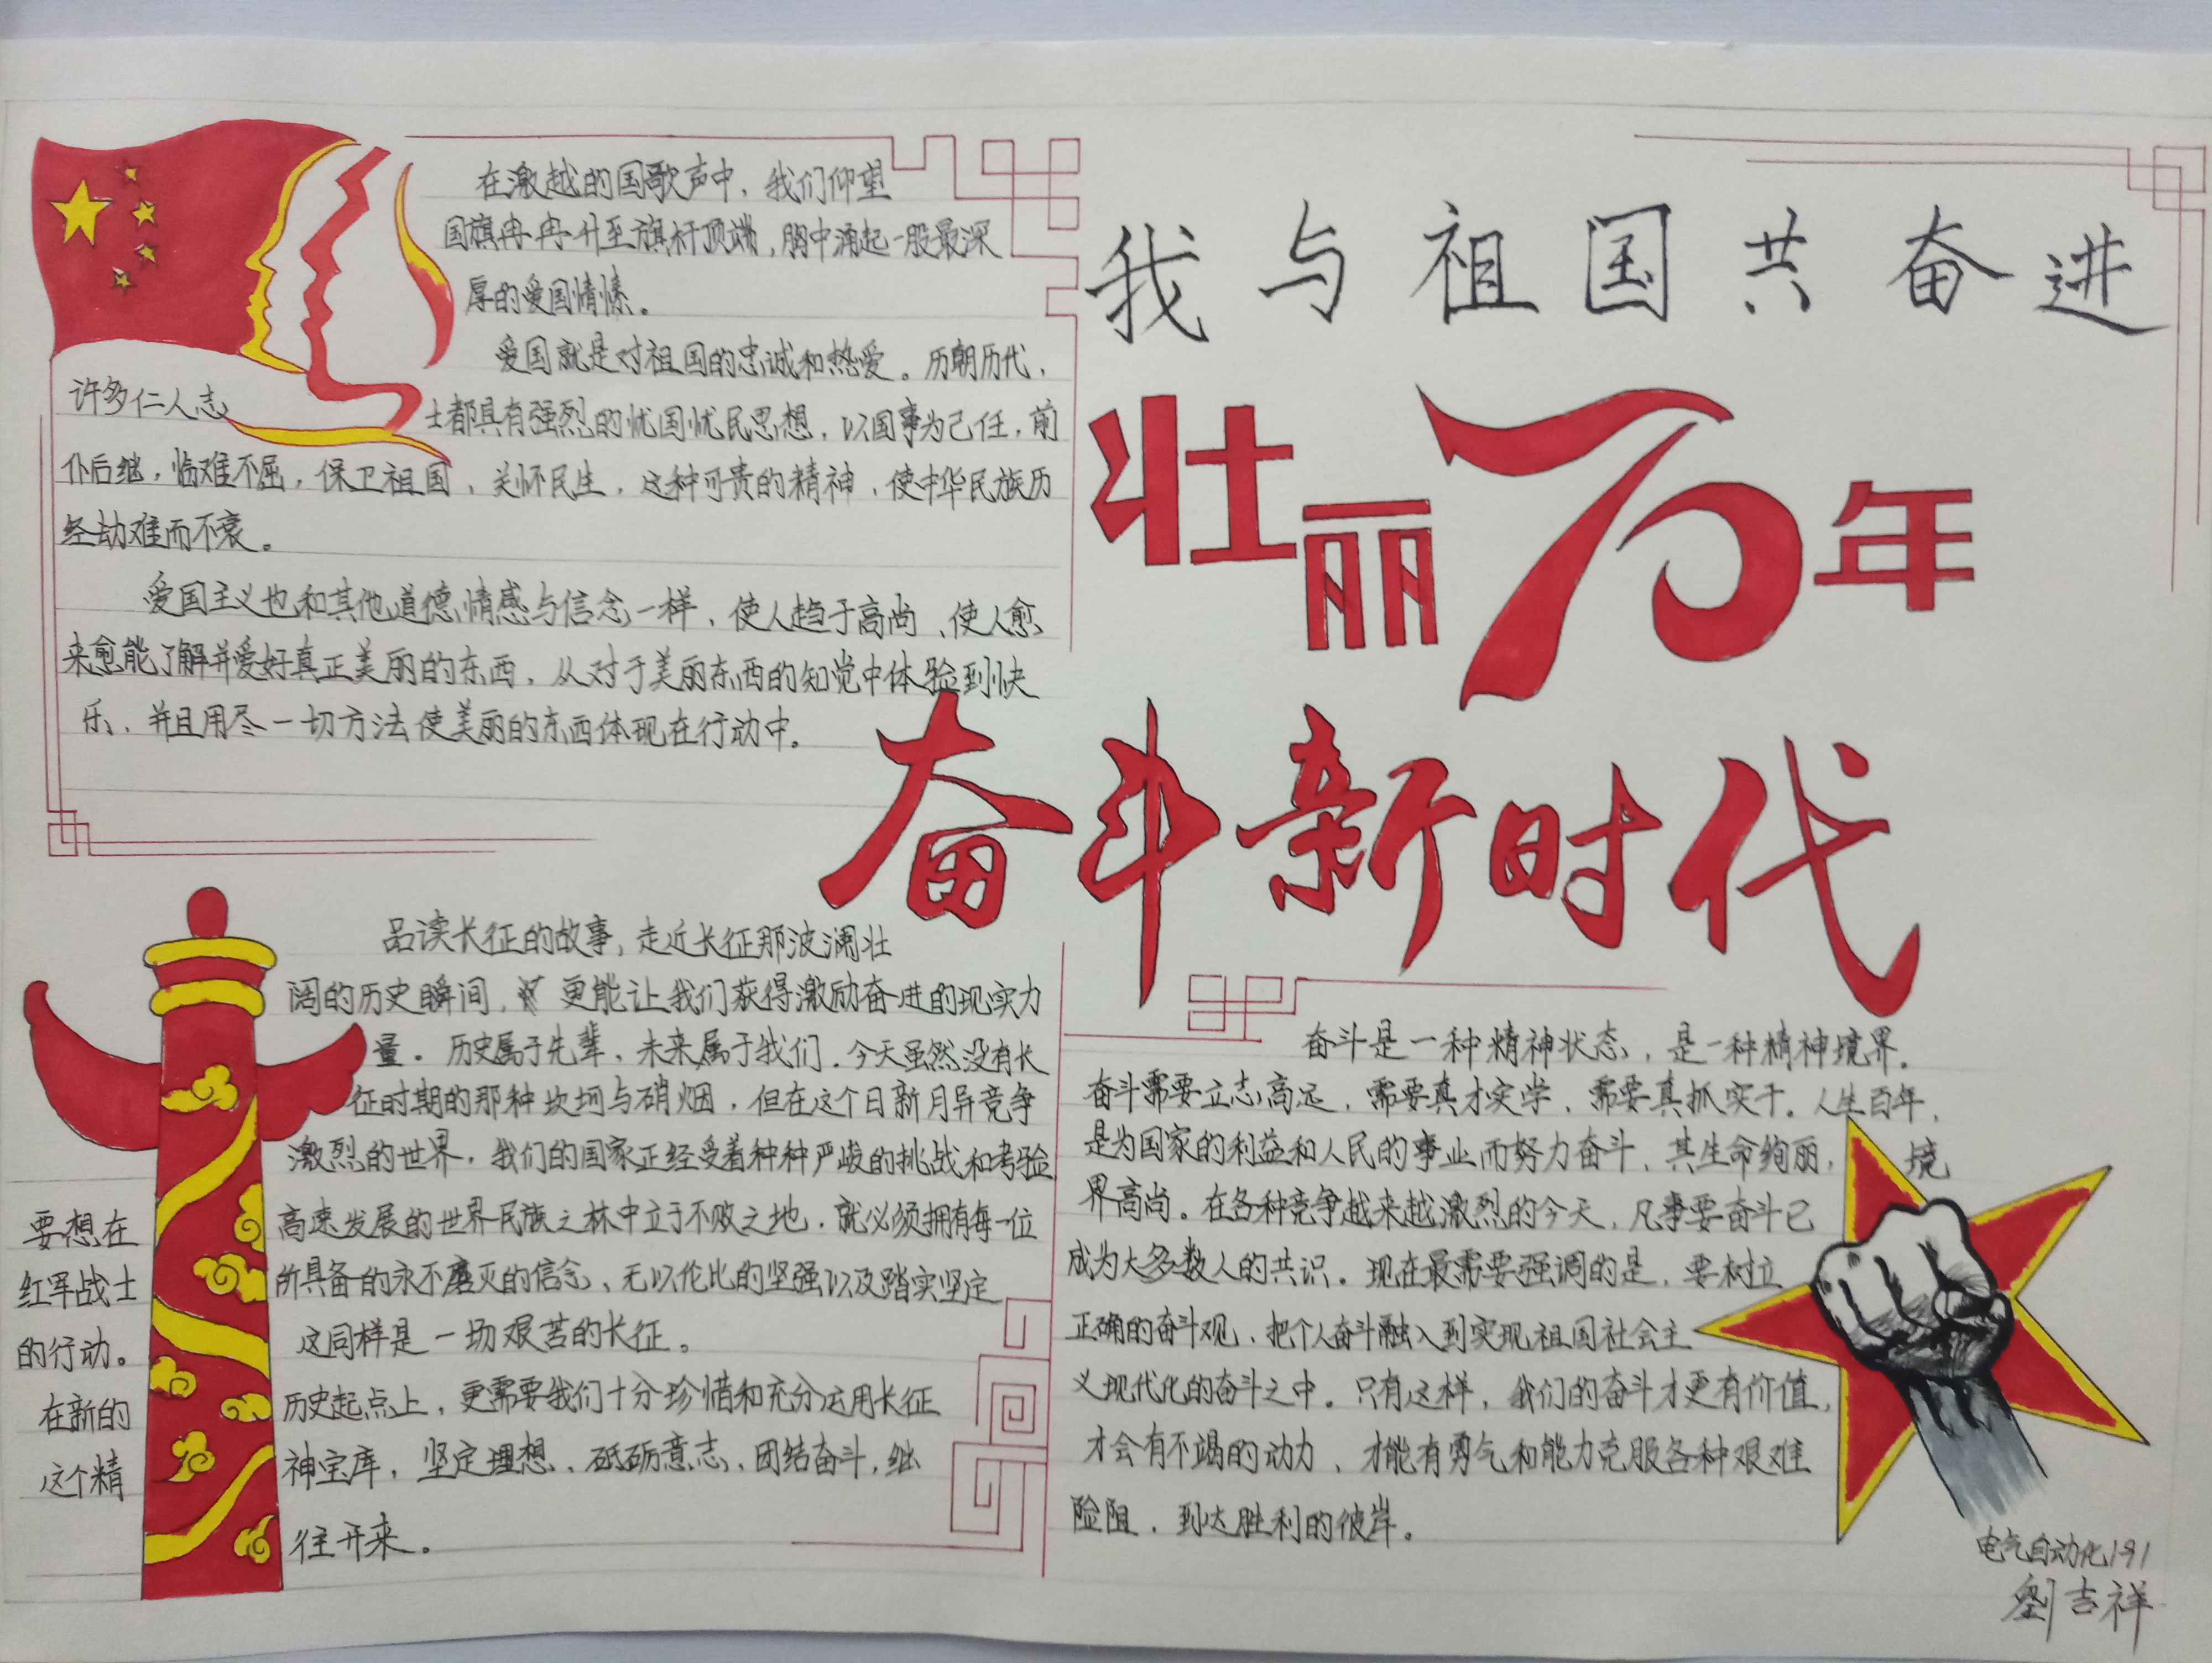 我与祖国共奋进
壮丽70年
奋斗新时代
在激越的国歌声中，我们仰望
国旗冉冉升至旗杆顶端，胸中涌起一股最深
厚的爱国情愫。
爱国就是对祖国的忠诚和热爱。历朝历代，
许多仁人志士都具有强烈的忧国忧民思想，以国事为己任，前
仆后继，临难不屈，保卫祖国，关怀民生，这种可贵的精神，使中华民族历
经劫难而不衰。
爱国主义也和其他道德情感与信念一样，使人趋于高尚、使人愈
来愈能了解并爱好真正美丽的东西，从对于美丽东西的知觉中体验到快
乐，并且用尽一切方法使美丽的东西体现在行动中。
品读长征的故事，走近长征那波澜壮
阔的历史瞬间，更能让我们获得激励奋进的现实力
量。历史属于先辈，未来属于我们。今天虽然没有长
征时期的那种坎坷与硝烟，但在这个日新月异竞争
激烈的世界，我们的国家正经受着种种严峻的挑战和考验
要想在高速发展的世界民族之林中立于不败之地，就必须拥有每一位
红军战士所具备的永不磨灭的信念、无以伦比的坚强以及踏实坚定
的行动。这同样是一场艰苦的长征。
在新的历史起点上，更需要我们十分珍惜和充分运用长征
这个精神宝库，坚定理想、砥砺意志、团结奋斗，继
往开来。
奋斗是一种精神状态，是一种精神境界。
奋斗需要立志高远，需要真才实学，需要真抓实干。人生百年，
是为国家的利益和人民的事业而努力奋斗，其生命绚丽，境
界高尚。在各种竞争越来越激烈的今天，凡事要奋斗已
成为大多数人的共识。现在最需要强调的是，要树立
正确的奋斗观，把个人奋斗融入到实现祖国社会主
义现代化的奋斗之中。只有这样，我们的奋斗才更有价值，
才会有不竭的动力，才能有勇气和能力克服各种艰难
险阻，到达胜利的彼岸。
电气自动化191
劉吉祥